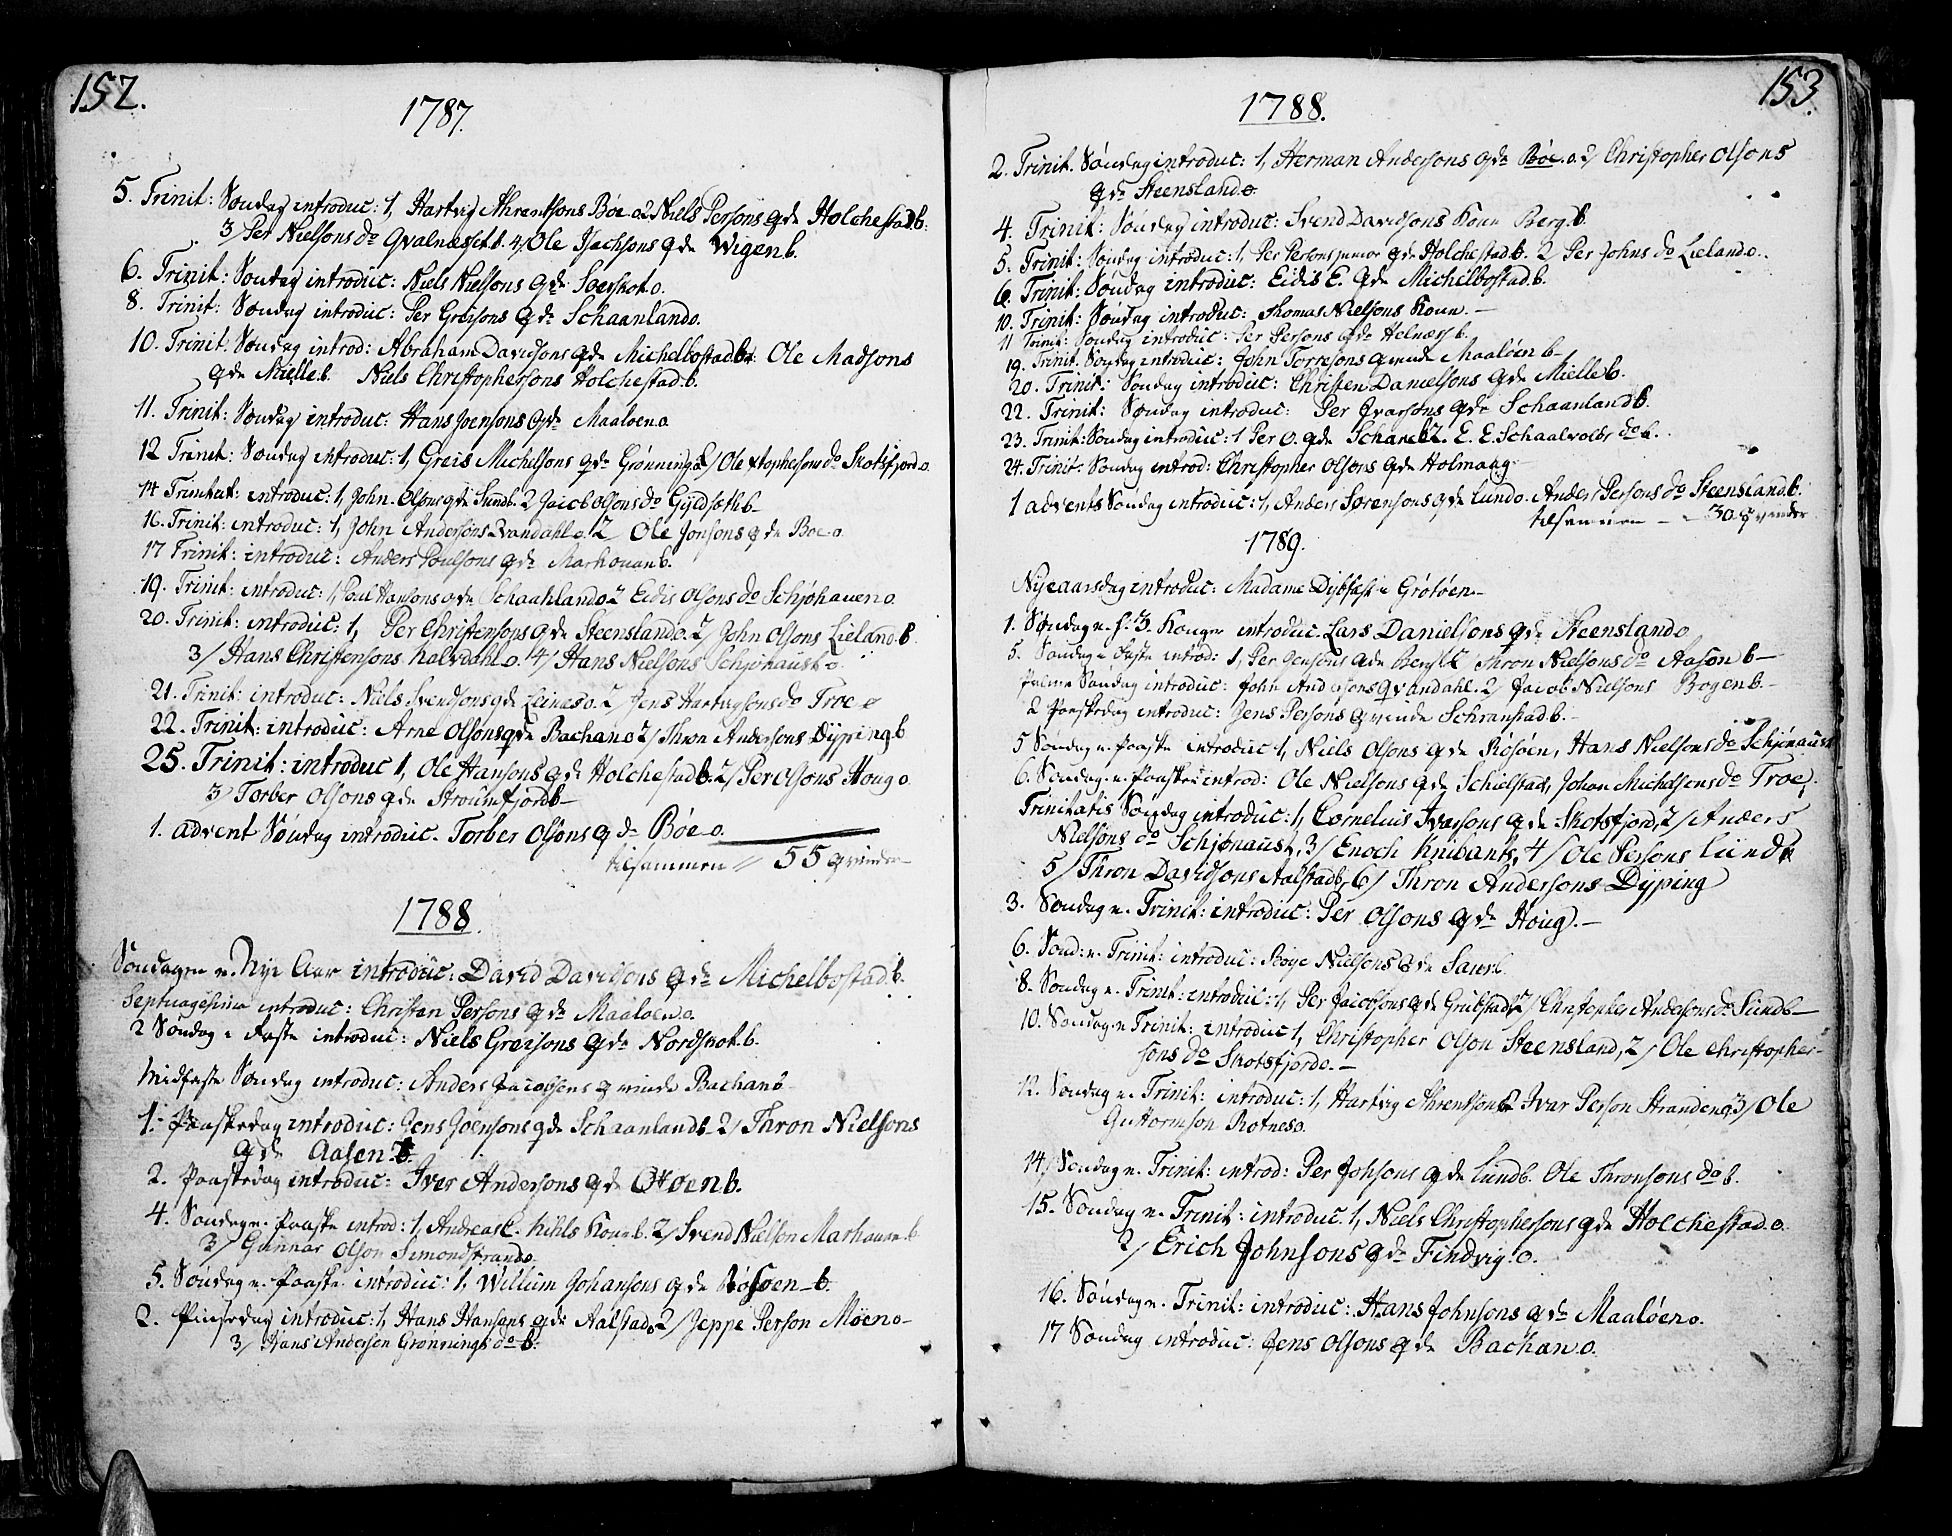 152.
1787.
5. Trinit: Søndag introduc: 1, Hartvig Ahrentsons Bøe o 2 Niels Persons qde Holchestad b.
3/ Per Nielsons do Qvalnesset b. 4/ Ole Isachsons qde Wigen b.
6. Trinit: Søndag introduc: Niels Nielsons qde Sørskot o.
8. Trinit: Søndag introduc: Per Greisons qde Schaanland o.
10. Trinit. Søndag introd: Abraham Davidsons qde Michelbostad b Ole Madsons
qde Mielle b. Niels Christophersons Holchestad b.
11. Trinit: Søndag introduc: Hans Joensons qde Maaloen o
12 Trinit: Søndag introduc: 1, Greis Michelsons qde Grønning 2/ Ole Xtophersons do Skotsfjord o
14 Trinitat: introduc: 1, John Olsons qde Sund b. 2 Jacob Olsons do Gyldsæth b
16. Trinit: introduc: 1, John Andersøns Qvandahl o 2 Ole Jonsons qde Boe o
17 Trinit: introduc: Anders Poulsons qde Markouan b.
19. Trinit: introduc: 1, Paul Hansons qde Schaahland o 2 Eidis Olsons do Schjøhauen o
20. Trinit: introduc: 1, Per Christensons qde Steensland o. 2/ John Olsons Lieland b
3/ Hans Christensons Kalvdahl o. 4/ Hans Nielsons Schjøhaust o
21. Trinit: introduc: Niels Svendsons qde Leines o. 2/ Jens Hartvigsons do Troe o
22. Trinit: introduc: Arne Olsons qde Bachan o 2/ Thron Andersons Dyping b
25. Trinit: introduc 1, Ole Hansons qde Holchestad b. 2/ Per Olsons Houg o
3/ Torber Olsons qde Stroumfjord b
1. advent Søndag introduc. Torber Olsons qde Bøe o.
tilsammen 55 qvinder
1788.
Søndagen n. Nye Aar introduc: David Davidsons qde Michelbostad b.
Septuagesima introduc: Christan Persons qde Maaloen o.
2 Søndag i Faste introduc: Niels Greisons qde Nordskot b.
Midfaste Søndag introduc: Anders Jacobsens qvinde Bachan b
1. Paaskedag introduc: Jens Joensons qde Schaanland b 2/ Thron Nielsons
qde Aasen b
2. Paaskedag introduc: Iver Andersons qde Oxøen b.
4. Søndag n. Paaske introd: 1, Andreas C. Kihls Kone b. 2/ Svend Nielson Markauan b
3/ Gunnar Olson Simondstrand o.
5. Søndag n. Paaske introduc: 1, Willum Johansons qde Røsøen b.
2. Pinsedag introduc: 1, Hans Hansons qde Aalstad o 2/ Jeppe Person Møen o
3/ Hans Anderson Grønnings do b.
153.
1788.
2. Trinit. Søndag introduc: 1, Herman Andersons qde Bøe o. 2/ Christopher Olsons
qde Steensland o
4. Trinit: Søndag introduc: Svend Davidsons Kone Berg b.
5. Trinit: Søndag introduc: 1, Per Persons junior qde Holchestad b. 2 Per Johns do Lieland o.
6. Trinit: Søndag introduc: Eidis E. qde Michelbostad b.
10. Trinit: Søndag introduc: Thomas Nielsons Kone.
11 Trinit: Søndag introduc: Per Persons qde Helnæss b.
19. Trinit. Søndag introduc: John Torresons qvinde Maaløen b
20. Trinit: Søndag introduc: Christen Danielsons qde Mielle b.
22. Trinit: Søndag introduc: Per Ivarsons qde Schaanland b.
23. Trinit: Søndag introduc: 1 Per O. qde Schareb 2. E. E. Schaalvolds do b.
24. Trinit: Søndag introd: Christopher Olsons qde Holmaag
1 advents Søndag introduc: 1, Anders Sørensons qde Lund o. Anders Persons do Steensland b.
tilsammen 30 qvinder
1789.
Nyeaarsdag introduc: Madame Dybfest i Grøtøen
1. Søndag n. h. 3. Konger introduc. Lars Danielsons qde Steensland o
5. Søndag i Faste introd: 1, Per Jensons qde Berg 2 Thron Nielsons do Aasen b
Palme Søndag introduc: John Andersons Qvandahl. 2/ Jacob Nielsons Bogen b.
2 Paaskedag introduc: Jens Persons qvinde Schranstad b.
5 Søndag n. Paaske introduc 1, Niels Olsons qde Røsøen, Hans Nielsons do Schjønaust
6. Søndag. n. Paaske introd: Ole Nielsons qde Schielstad, Johan Michelsens do Troe,
Trinitatis Søndag introduc: 1, Cornelius Iversons qde Skotsfjord, 2/ Anders
Nielsons do Schjønaust, 3/ Enoch Knibants, 4/ Ole Persons Lund b
5/ Thron Davidsons Aalstad b, 6/ Thron Andersons Dyping
3. Søndag n. Trinit: introduc: Per Olsons qde Houg.
6. Sond: n. Trinit: introduc: Boye Nielsons qde
8. Søndag n. Trinit: introduc: 1, Per Jacobsons qde Grubstad 2/ Christopher Andersons do Sund b
10. Søndag n Trinit: introduc 1, Christopher Olson Steensland, 2/ Ole Christopher-
sons do Skotsfjord o.
12. Søndag n. Trinit: introduc: 1, Hartvig Ahrentson b 2 Ivar Person Stranden 3/ Ole
Guttormson Rotnes o.
14/ Søndag n. Trinit: introd: Per Johsons qde Lund b. Ole Thronsons do b.
15. Søndag n. Trinit: introduc. 1, Niels Christophersons qde Holchestad o.
2/ Erich Johnsons qde Findvig. o.
16. Søndag n. Trinit: introduc: Hans Johnsons qde Maaløen o.
17 Søndag introduc: Jens Olsons qde Bachan. o.